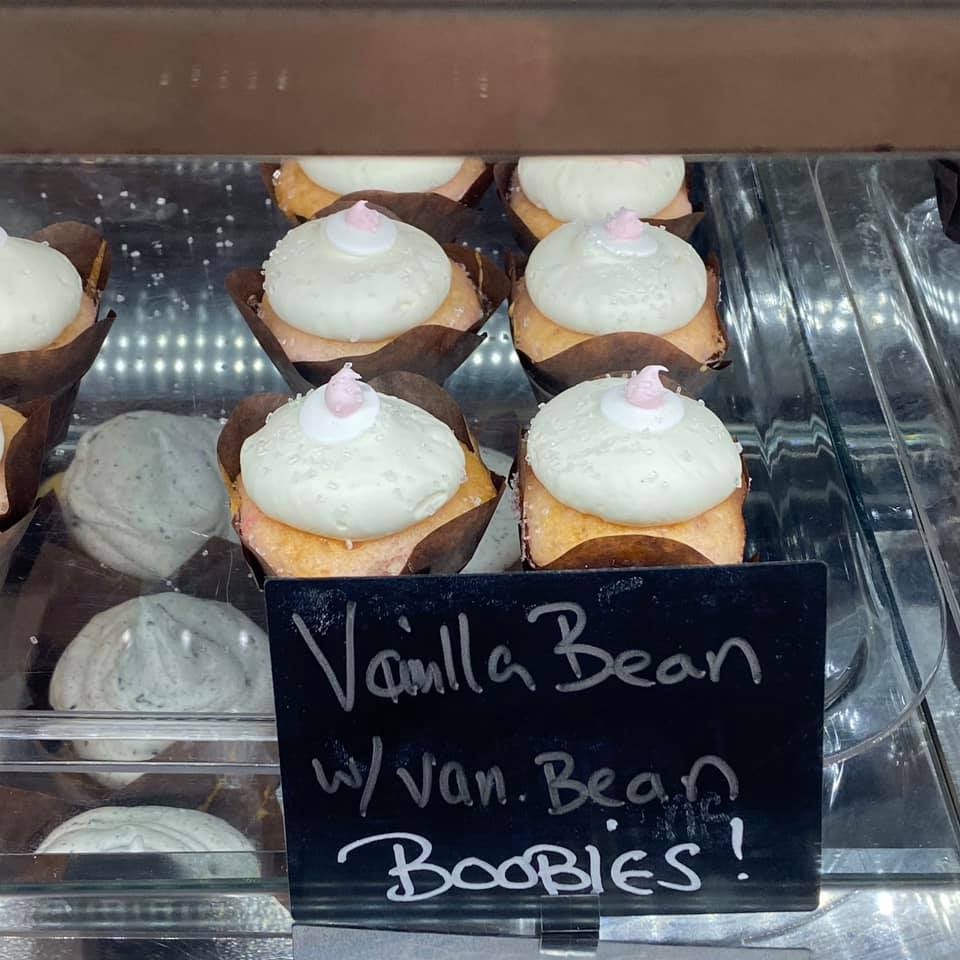 Vanilla Bean
w/ Van. Bean
BOOBIES!